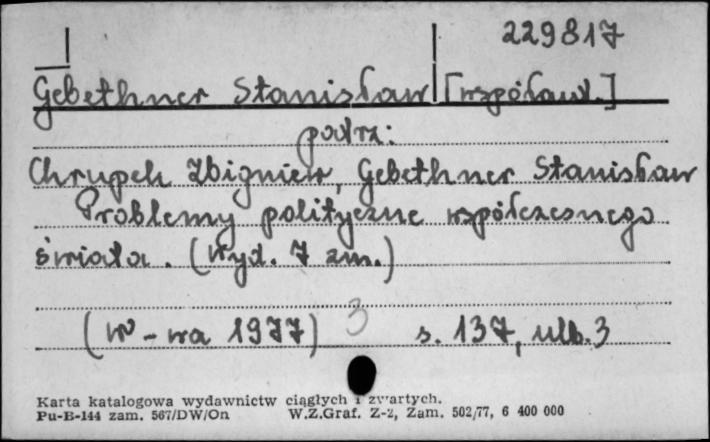 229817
Gebethner Stanisław [współaut.]
patrz:
Chrupek Zbigniew, Gebethner Stanisław
Problemy polityczne współczesnego
świata. (Wyd. 7 zm.)
3
(W-wa 1977) s. 137, nlb. 3
Karta katalogowa wydawnictw ciągłych i zwartych.
Pu-B-144 zam. 567/DW/On W.Z.Graf. Z-2, Zam. 502/77, 6 400 000